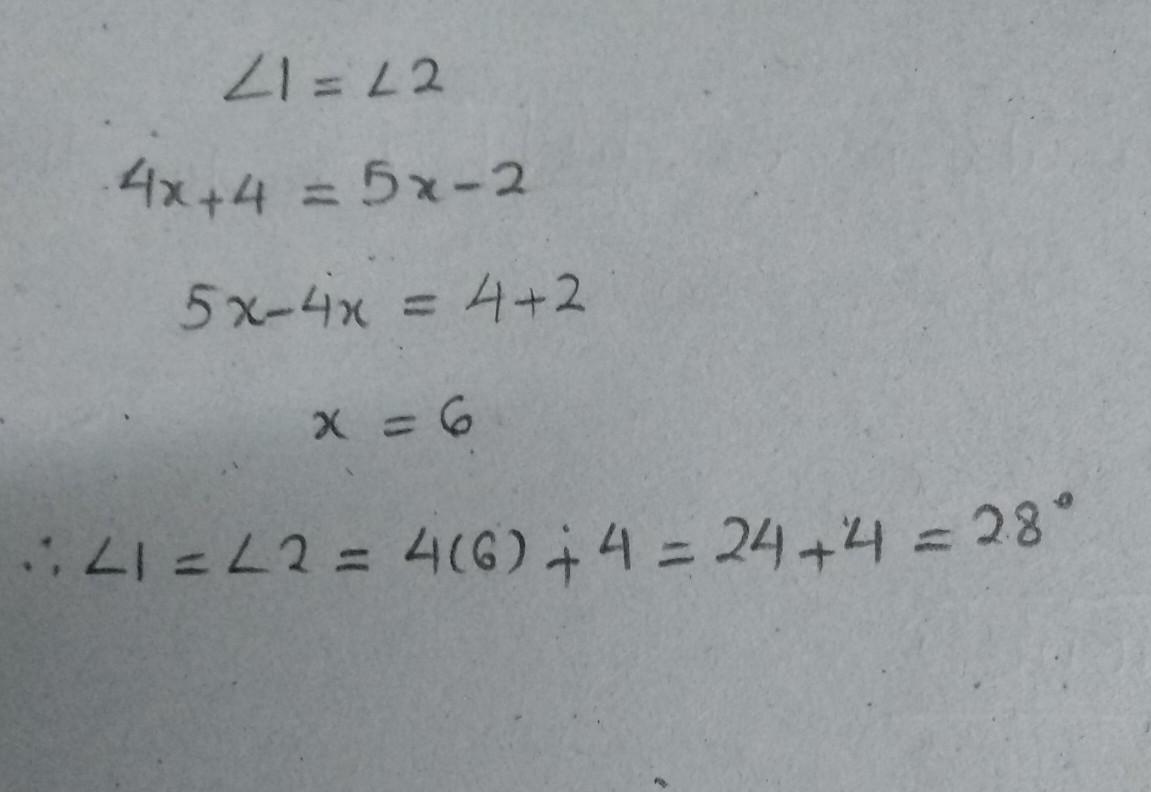 ∠1 = ∠2
4x+4 = 5x-2
5x-4x = 4+2
x = 6
∴ ∠1 = ∠2 = 4(6) + 4 = 24 + 4 = 28°